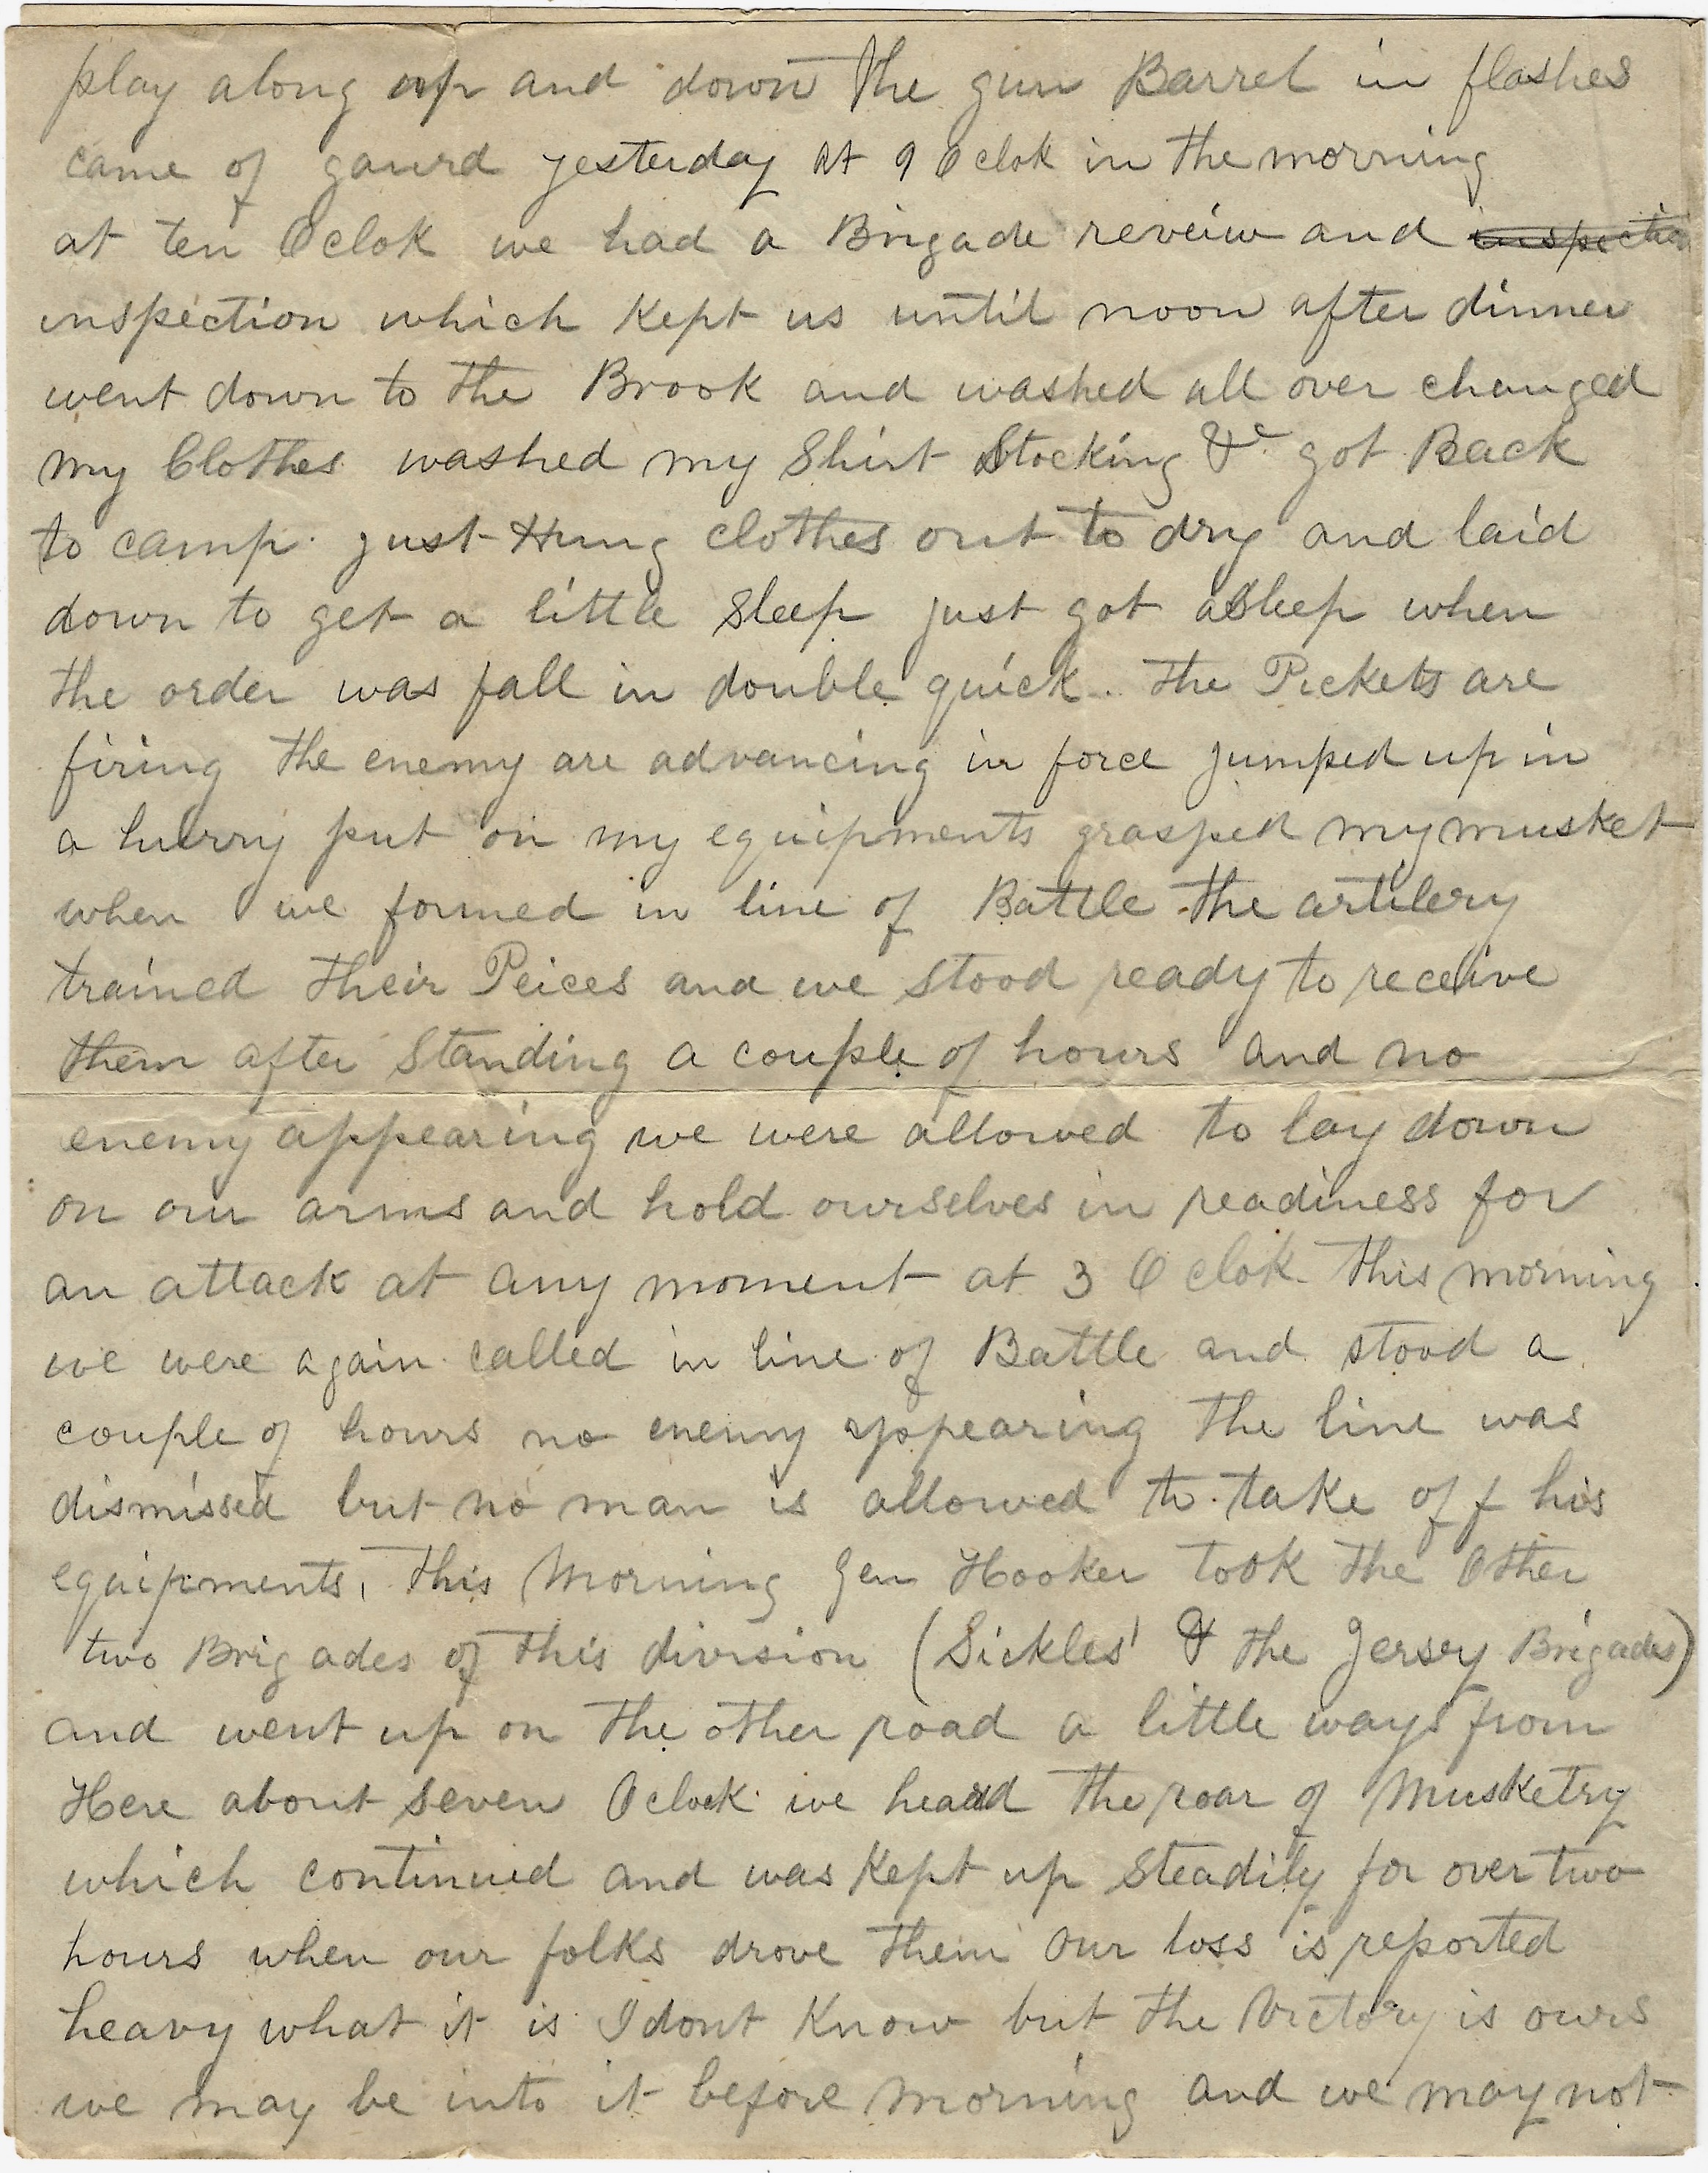 play along up and down the gun Barrel in flashes
came of gaurd yesterday at 9 Oclok in the morning
at ten Oclok we had a Brigade reveiw and inspection
inspection which Kept us until noon after dinner
went down to the Brook and washed all over changed
my Clothes washed my Shirt Stocking &c got Back
to camp. just Hung clothes out to dry and laid
down to get a little Sleep just got aSleep when
the order was fall in double quick.. the Pickets are
firing the enemy are advancing in force jumped up in
a hurry put on my equipments grasped my musket
when we formed in line of Battle the artilery
trained their Peices and we stood ready to receive
them after Standing a couple of hours and no
enemy appearing we were allowed to lay down
on our arms and hold ourselves in readiness for
an attack at any moment at 3 O clok this morning
we were again called in line of Battle and stood a
couple of hours no enemy appearing the line was
dismissed but no man is allowed to take off his
equipments, this Morning Gen Hooker took the Other
two Brigades of this division (Sickles' & the Jersey Brigades)
and went up on the other road a little ways from
Here about seven Oclock we heard the roar of Musketry
which continued and was Kept up steadily for over two
hours when our folks drove them our loss is reported
heavy what it is I dont Know but the Victory is ours
we may be into it before morning and we may not